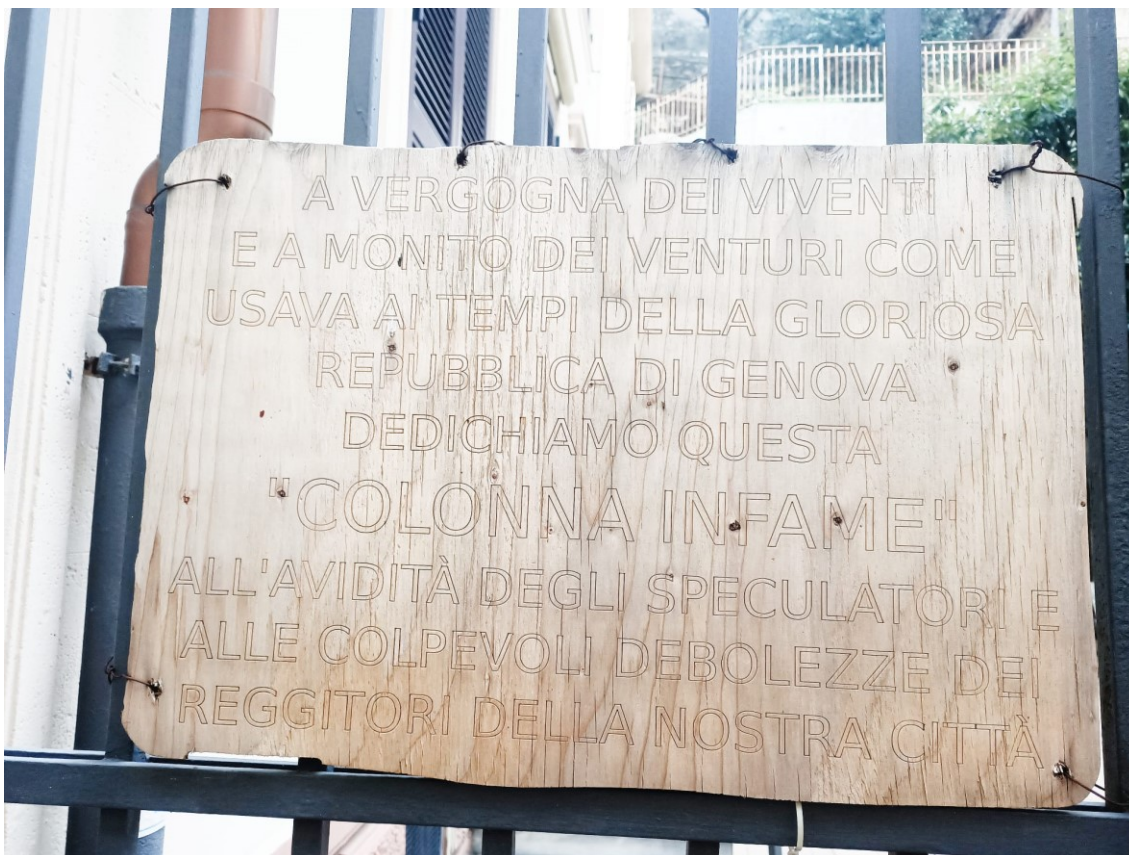 A VERGOGNA DEI VIVENTI
E A MONITO DEI VENTURI COME
USAVA AI TEMPI DELLA GLORIOSA
REPUBBLICA DI GENOVA
DEDICHIAMO QUESTA
"COLONNA INFAME"
ALL'AVIDITÀ DEGLI SPECULATORI E
ALLE COLPEVOLI DEBOLEZZE DEI
REGGITORI DELLA NOSTRA CITTÀ